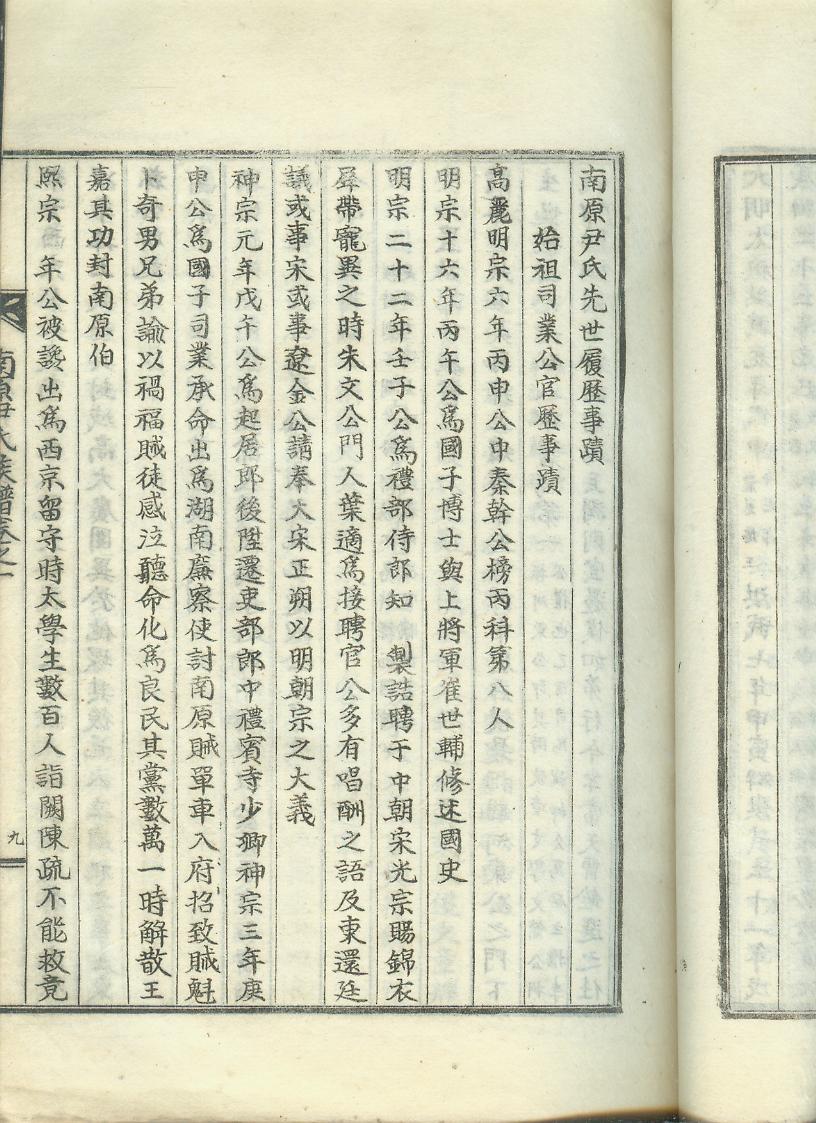 南原尹氏先世履歷事蹟
始祖司業公官歷事蹟
高麗明宗六年丙申公中秦幹公榜丙科第八人
明宗十六年丙午公爲國子博士與上將軍崔世輔修述國史
明宗二十二年壬子公爲禮部侍郎知 製誥聘于中朝宋光宗賜錦衣
犀帶寵異之時朱文公門人葉適爲接聘官公多有唱酬之語及東還廷
議或事宋或事遼金公請奉大宋正朔以明朝宗之大義
神宗元年戊午公爲起居郎後陞遷吏部郎中禮賓寺少卿神宗三年庚
申公爲國子司業承命出爲湖南廉察使討南原賊單車入府招致賊魁
卜奇男兄弟諭以禍福賊徒感泣聽命化爲良民其黨數萬一時解散王
嘉其功封南原伯
熙宗 年公被讒出爲西京留守時太學生數百人詣闕陳疏不能救竟
南原尹氏族譜卷之一
九